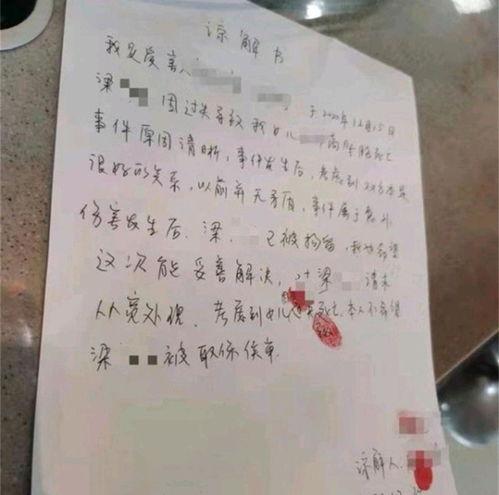 谅解书
我是受害人
梁 因过失导致我女儿 高坠胸死亡 于2020年12月15日
事件原因清晰，事件发生后，考虑到双方
很好的关系，以前并无矛盾，事件属于意外
伤害发生后，梁 已被拘留，我
这次能妥善解决，对梁 请求
从宽处理，考虑到女儿 死亡，本人不希望
梁 被取保侯审
谅解人